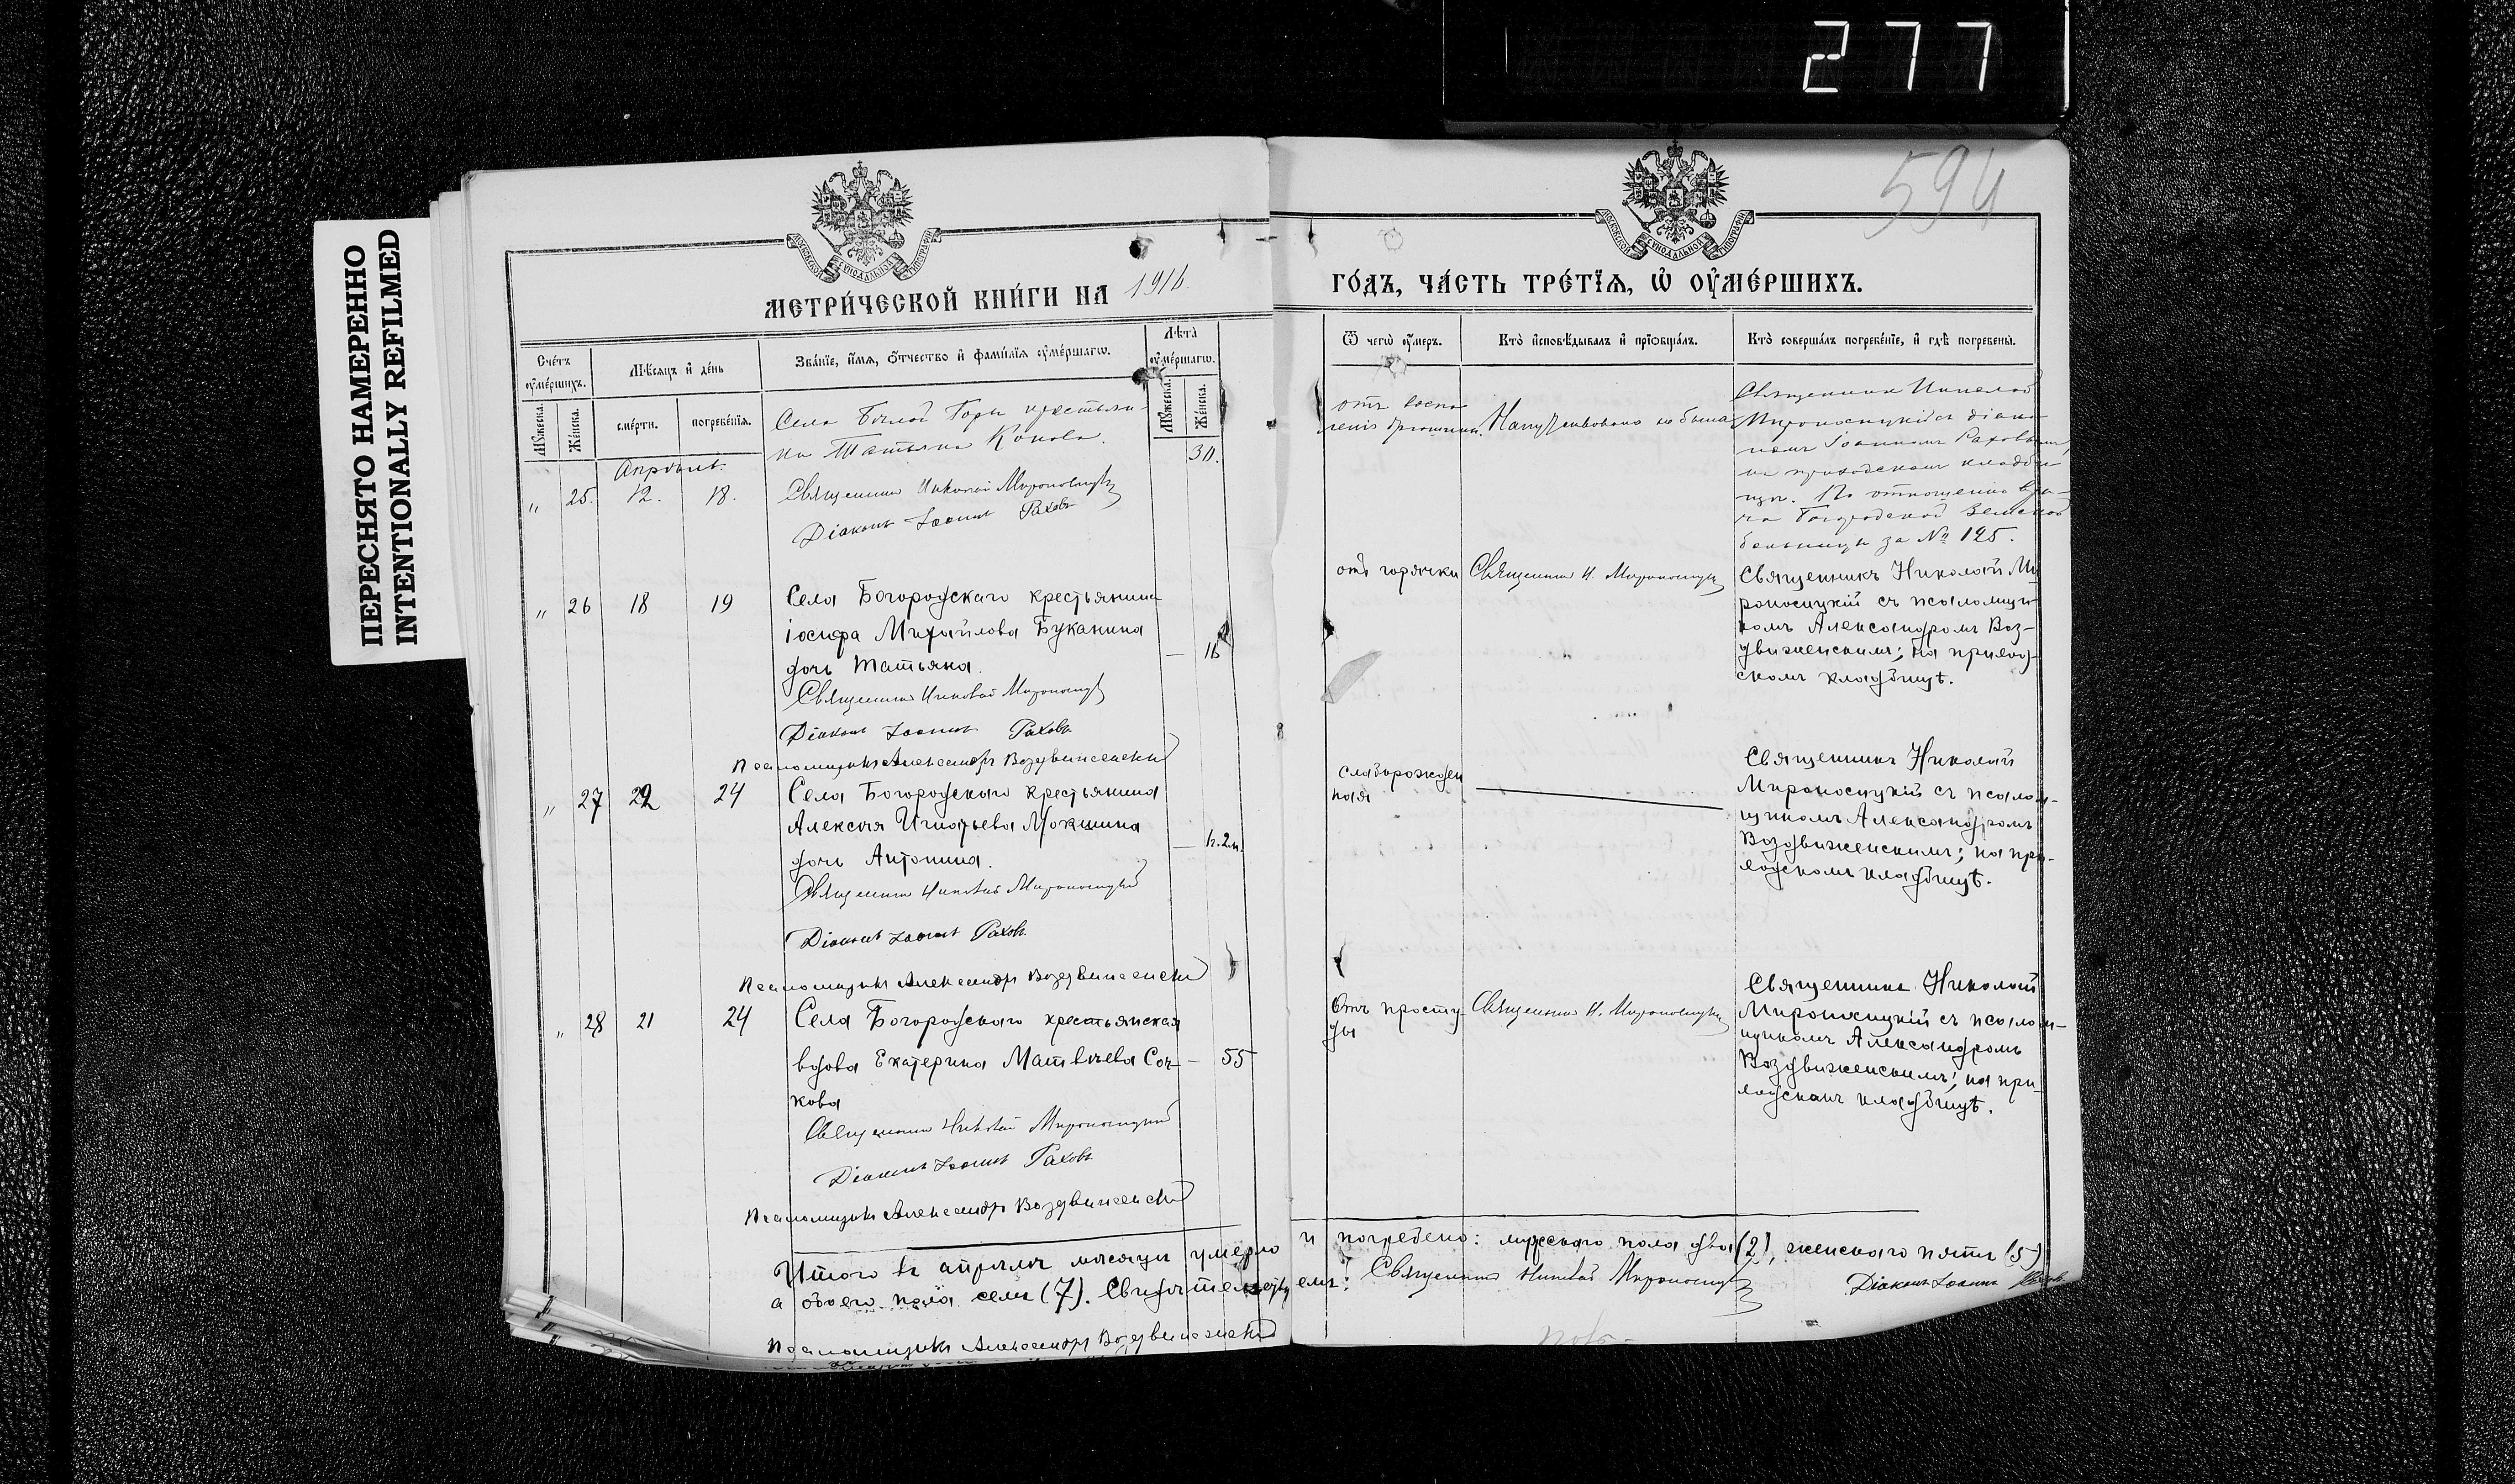 277
ПЕРЕСНЯТО НАМЕРЕННО
INTENTIONALLY REFILMED
594
МОСКОВСКОЙ СѴНОДАЛЬНОЙ ТИПОГРАФІИ
МОСКОВСКОЙ СѴНОДАЛЬНОЙ ТИПОГРАФІИ
МЕТРИ́ЧЕСКОЙ КНИ́ГИ НА 1916
ГО́ДЪ, ЧА́СТЬ ТРЕ́ТЇѦ, Ѡ҆ ОУ҆МЕ́РШИХЪ.
Сче́тъ оу҆ме́ршихъ.
Мѣ́сяцъ и҆ де́нь
Зва́нїе, и҆́мѧ, ѻ҆́тчество и҆ фами́лїѧ оу҆ме́ршагѡ.
Лѣ́та̀ оу҆ме́ршагѡ.
Му́жеска.
Же́нска.
сме́рти.
погребе́нїѧ.
Му́жеска.
Же́нска.
Ѿ чегѡ̀ оу҆́меръ.
Кто̀ и҆сповѣ́дывалъ и҆ прїѡбща́лъ.
Кто̀ соверша́лъ погребе́нїе, и҆ гдѣ̀ погребены̀.
Апрѣль.
„ 25. 12. 18.
Села Бѣлой Горы крестьян-
ка Татьяна Конова.
30.
Священникъ Николай Мироносицкій
Діаконъ Іоаннъ Раховъ
отъ воспа-
ленія брюшины.
Напутствована не была
Священник Николай
Мироносицкій съ діако-
номъ Іоанномъ Раховымъ,
на приходскомъ кладби-
щѣ. По отношенію вра-
ча Богородской Земской
больницы за № 125.
„ 26 18 19
Села Богородскаго крестьянина
іосифа Михайлова Буканина
дочь Татьяна.
— 16
Священникъ Николай Мироносицкій
Діаконъ Іоаннъ Раховъ
Псаломщикъ Александръ Воздвиженскій
отъ горячки
Священникъ Н. Мироносицкій
Священникъ Николай Ми-
роносицкій съ псаломщи-
комъ Александромъ Воз-
движенскимъ; на приход-
скомъ кладбищѣ.
„ 27 22 24
Села Богородскаго крестьянина
Алексѣя Игнатьева Мокшина
дочь Антонина.
— н.2м.
Священникъ Николай Мироносицкій
Діаконъ Іоаннъ Раховъ
Псаломщикъ Александръ Воздвиженскій
слаборожден
ная
Священникъ Николай
Мироносицкій съ псалом-
щикомъ Александромъ
Воздвиженскимъ; на при-
ходскомъ кладбищѣ.
„ 28 21 24
Села Богородскаго крестьянская
вдова Екатерина Матвѣева Соч-
кова
— 55
Священникъ Николай Мироносицкій
Діаконъ Іоаннъ Раховъ
Псаломщикъ Александръ Воздвиженскій
Отъ просту-
ды
Священникъ Н. Мироносицкій
Священникъ Николай
Мироносицкій съ псалом-
щикомъ Александромъ
Воздвиженскимъ; на при-
ходскомъ кладбищѣ.
Итого въ апрѣлѣ мѣсяцѣ умерло и погребено: мужского пола два (2), женскаго пять (5)
а обоего пола семь (7). Свидѣтельствуемъ: Священникъ Николай Мироносицкій Діаконъ Іоаннъ Раховъ
Псаломщикъ Александръ Воздвиженскій